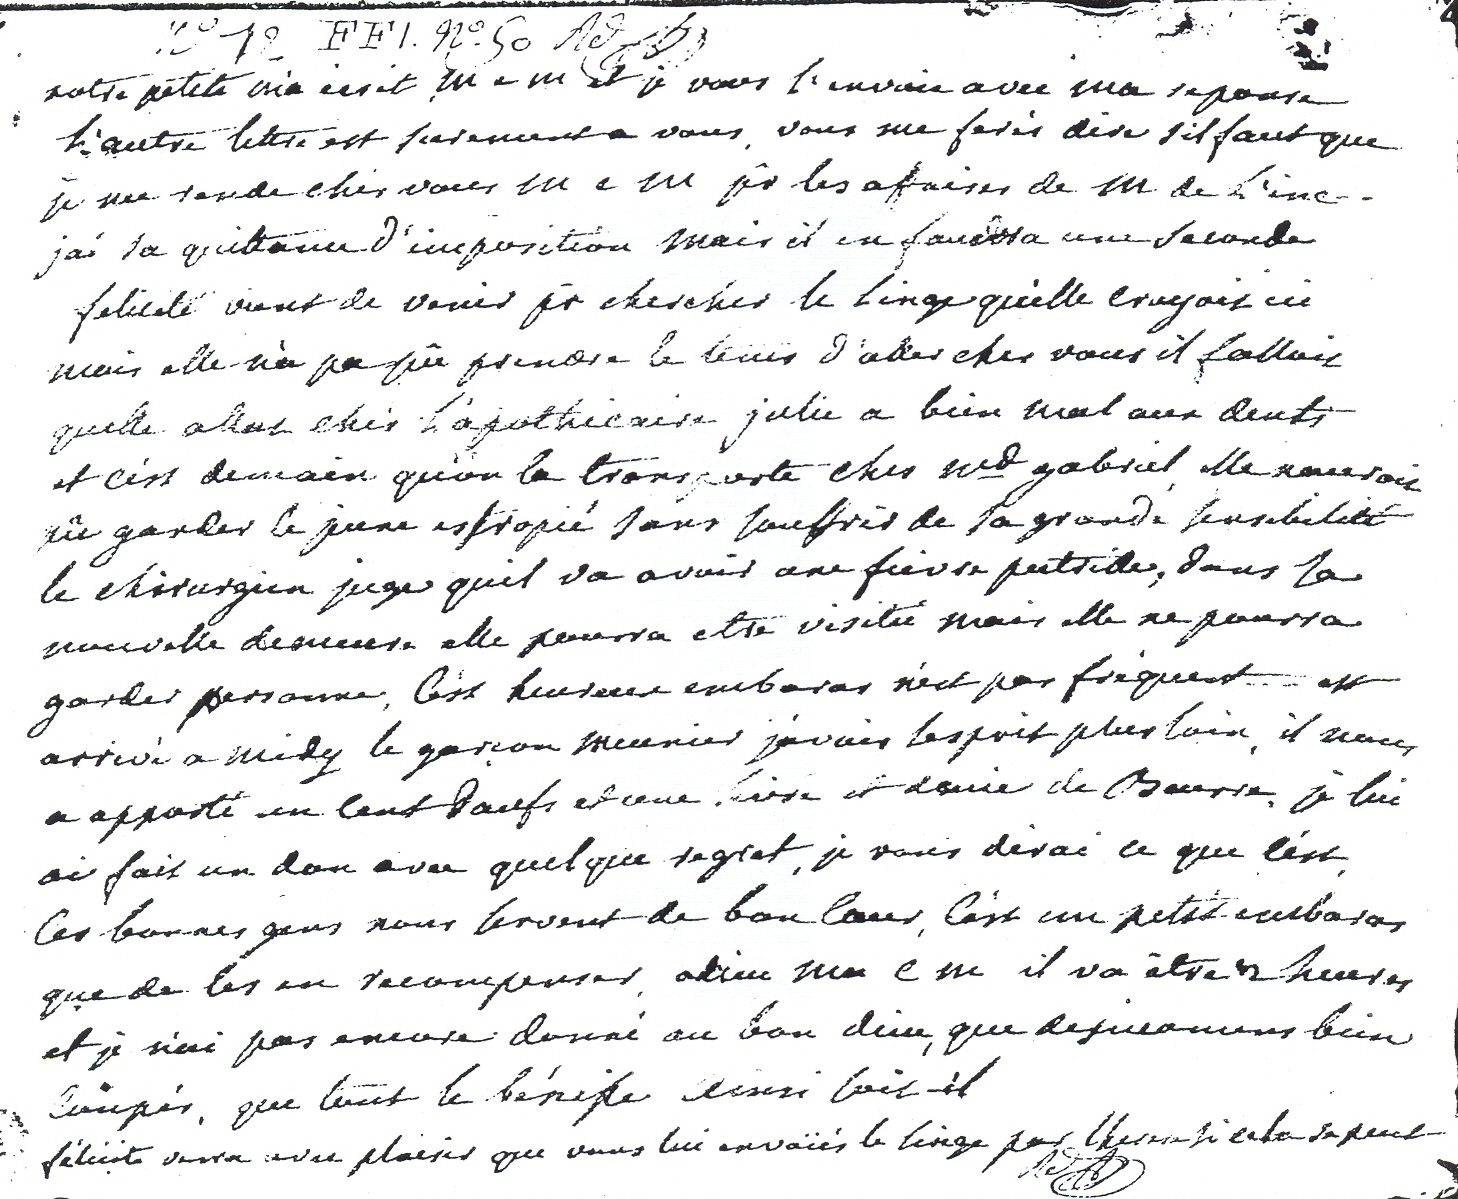 No 12 FFI. No. 50
notre petite m'a ecrit M e M et je vous l'envoie avec ma reponse
l'autre lettre est surement a vous, vous me ferés dire s'il faut que
je me rende chés vous M e M pr les affaires de M de L'inc--
j'ai sa quittance d'imposition mais il en faudra une seconde
felicité vient de venir pr chercher le linge qu'elle croyoit ici
mais elle n'a pas pû prendre le tems d'aller ches vous il falloit
quelle allat chés l'apothicaire julie a bien mal aux dents
et c'est demain qu'on la transporte ches md gabriel, elle nauroit
pû garder le jeune estropié sans souffrir de sa grande sensibilité
le chirurgien juge quil va avoir une fievre putride, dans sa
nouvelle demeure elle pourra etre visitée mais elle ne pourra
garder personne, C'est heureux embaras n'est pas fréquent est
arrivé a midy le garçon meunier j'avois l'esprit plus loin, il nous
a apporté un cent d'oeufs et une livre et demie de Beurre, je lui
ai fait un don avec quelque regret, je vous dirai ce que c'est,
Ces bonnes gens nous servent de bon Coeur, C'est un petit embaras
que de les en recompenser, adieu ma C M il va être 2 heures
et je n'ai pas encore donné au bon dieu, que des momens bien
Coupés, que tout le bénisse Ainsi soit-il
félicité verra avec plaisir que vous lui envoiiés le linge par si cela se peut